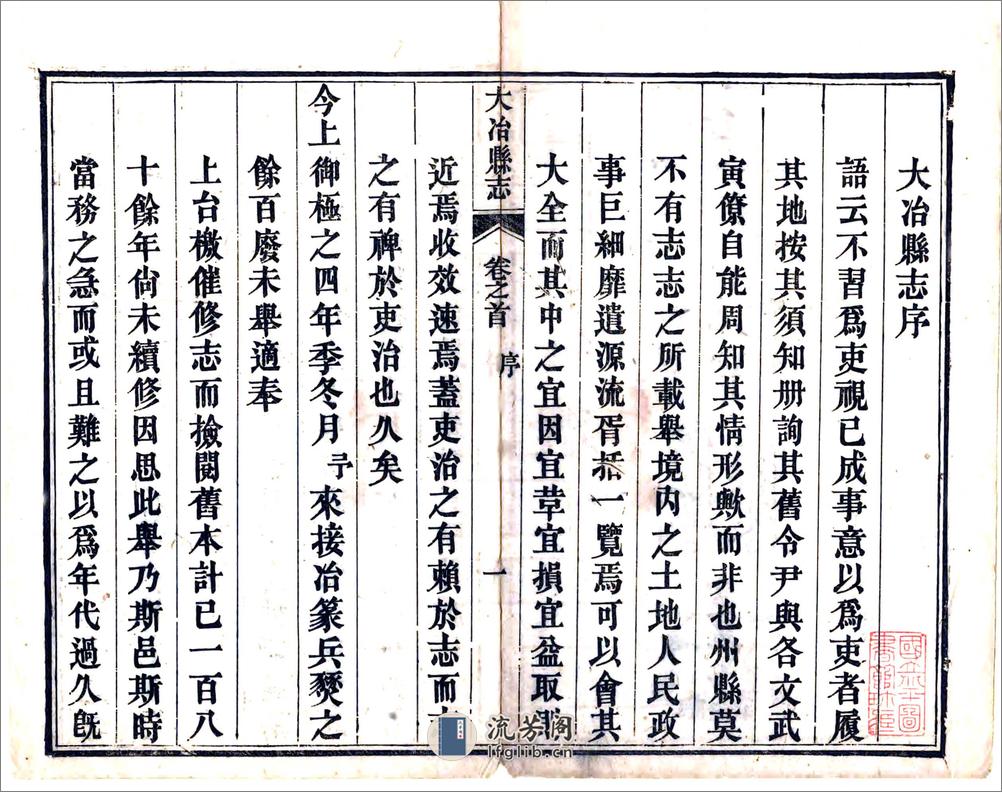 大冶縣志序
語云不習爲吏視已成事意以爲吏者履
其地按其須知册詢其舊令尹與各文武
寅僚自能周知其情形歟而非也州縣莫
不有志志之所載舉境內之土地人民政
事巨細靡遺源流胥括一覽焉可以會其
大全而其中之宜因宜革宜損宜益取則
大冶縣志 卷之首 序 一
近焉收效速焉蓋吏治之有賴於志而
之有裨於吏治也久矣
今上御極之四年季冬月予來接冶篆兵燹之
餘百廢未舉適奉
上台檄催修志而撿閱舊本計已一百八
十餘年尚未續修因思此舉乃斯邑斯時
當務之急而或且難之以爲年代過久旣
流芳阁
lfglib.cn